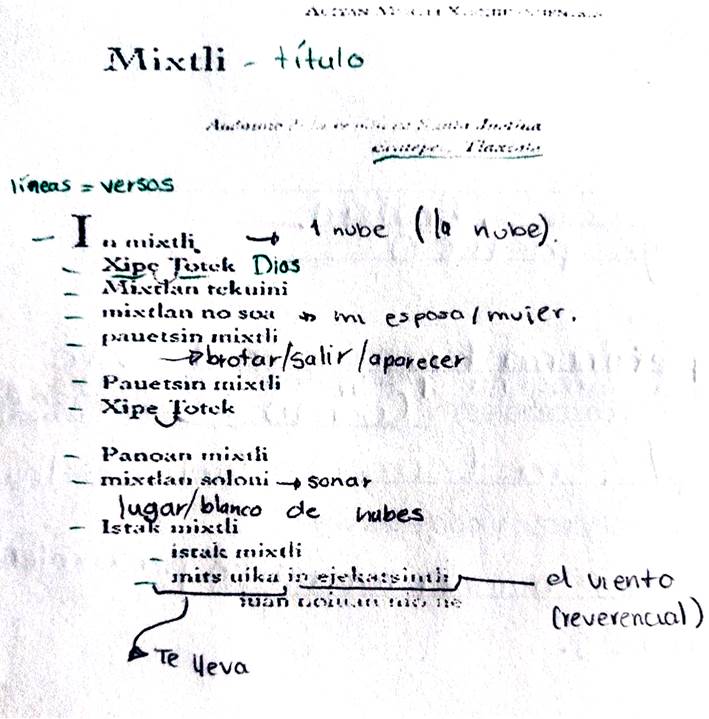 Mixtli - título
Santa Justina
Tlaxcala
líneas = versos
- In mixtli → 1 nube (la nube).
- Xipe Totek Dios
- Mixtlan tekuini
- mixtlan no soa → mi esposa/mujer.
- pauetsin mixtli
→ brotar/salir/aparecer
- Pauetsin mixtli
- Xipe Totek
- Panoan mixtli
- mixtlan soloni → sonar
lugar/blanco de nubes
- Istak mixtli
- istak mixtli
- mits uika in ejekatsintli — el viento
(reverencial)
→ Te lleva